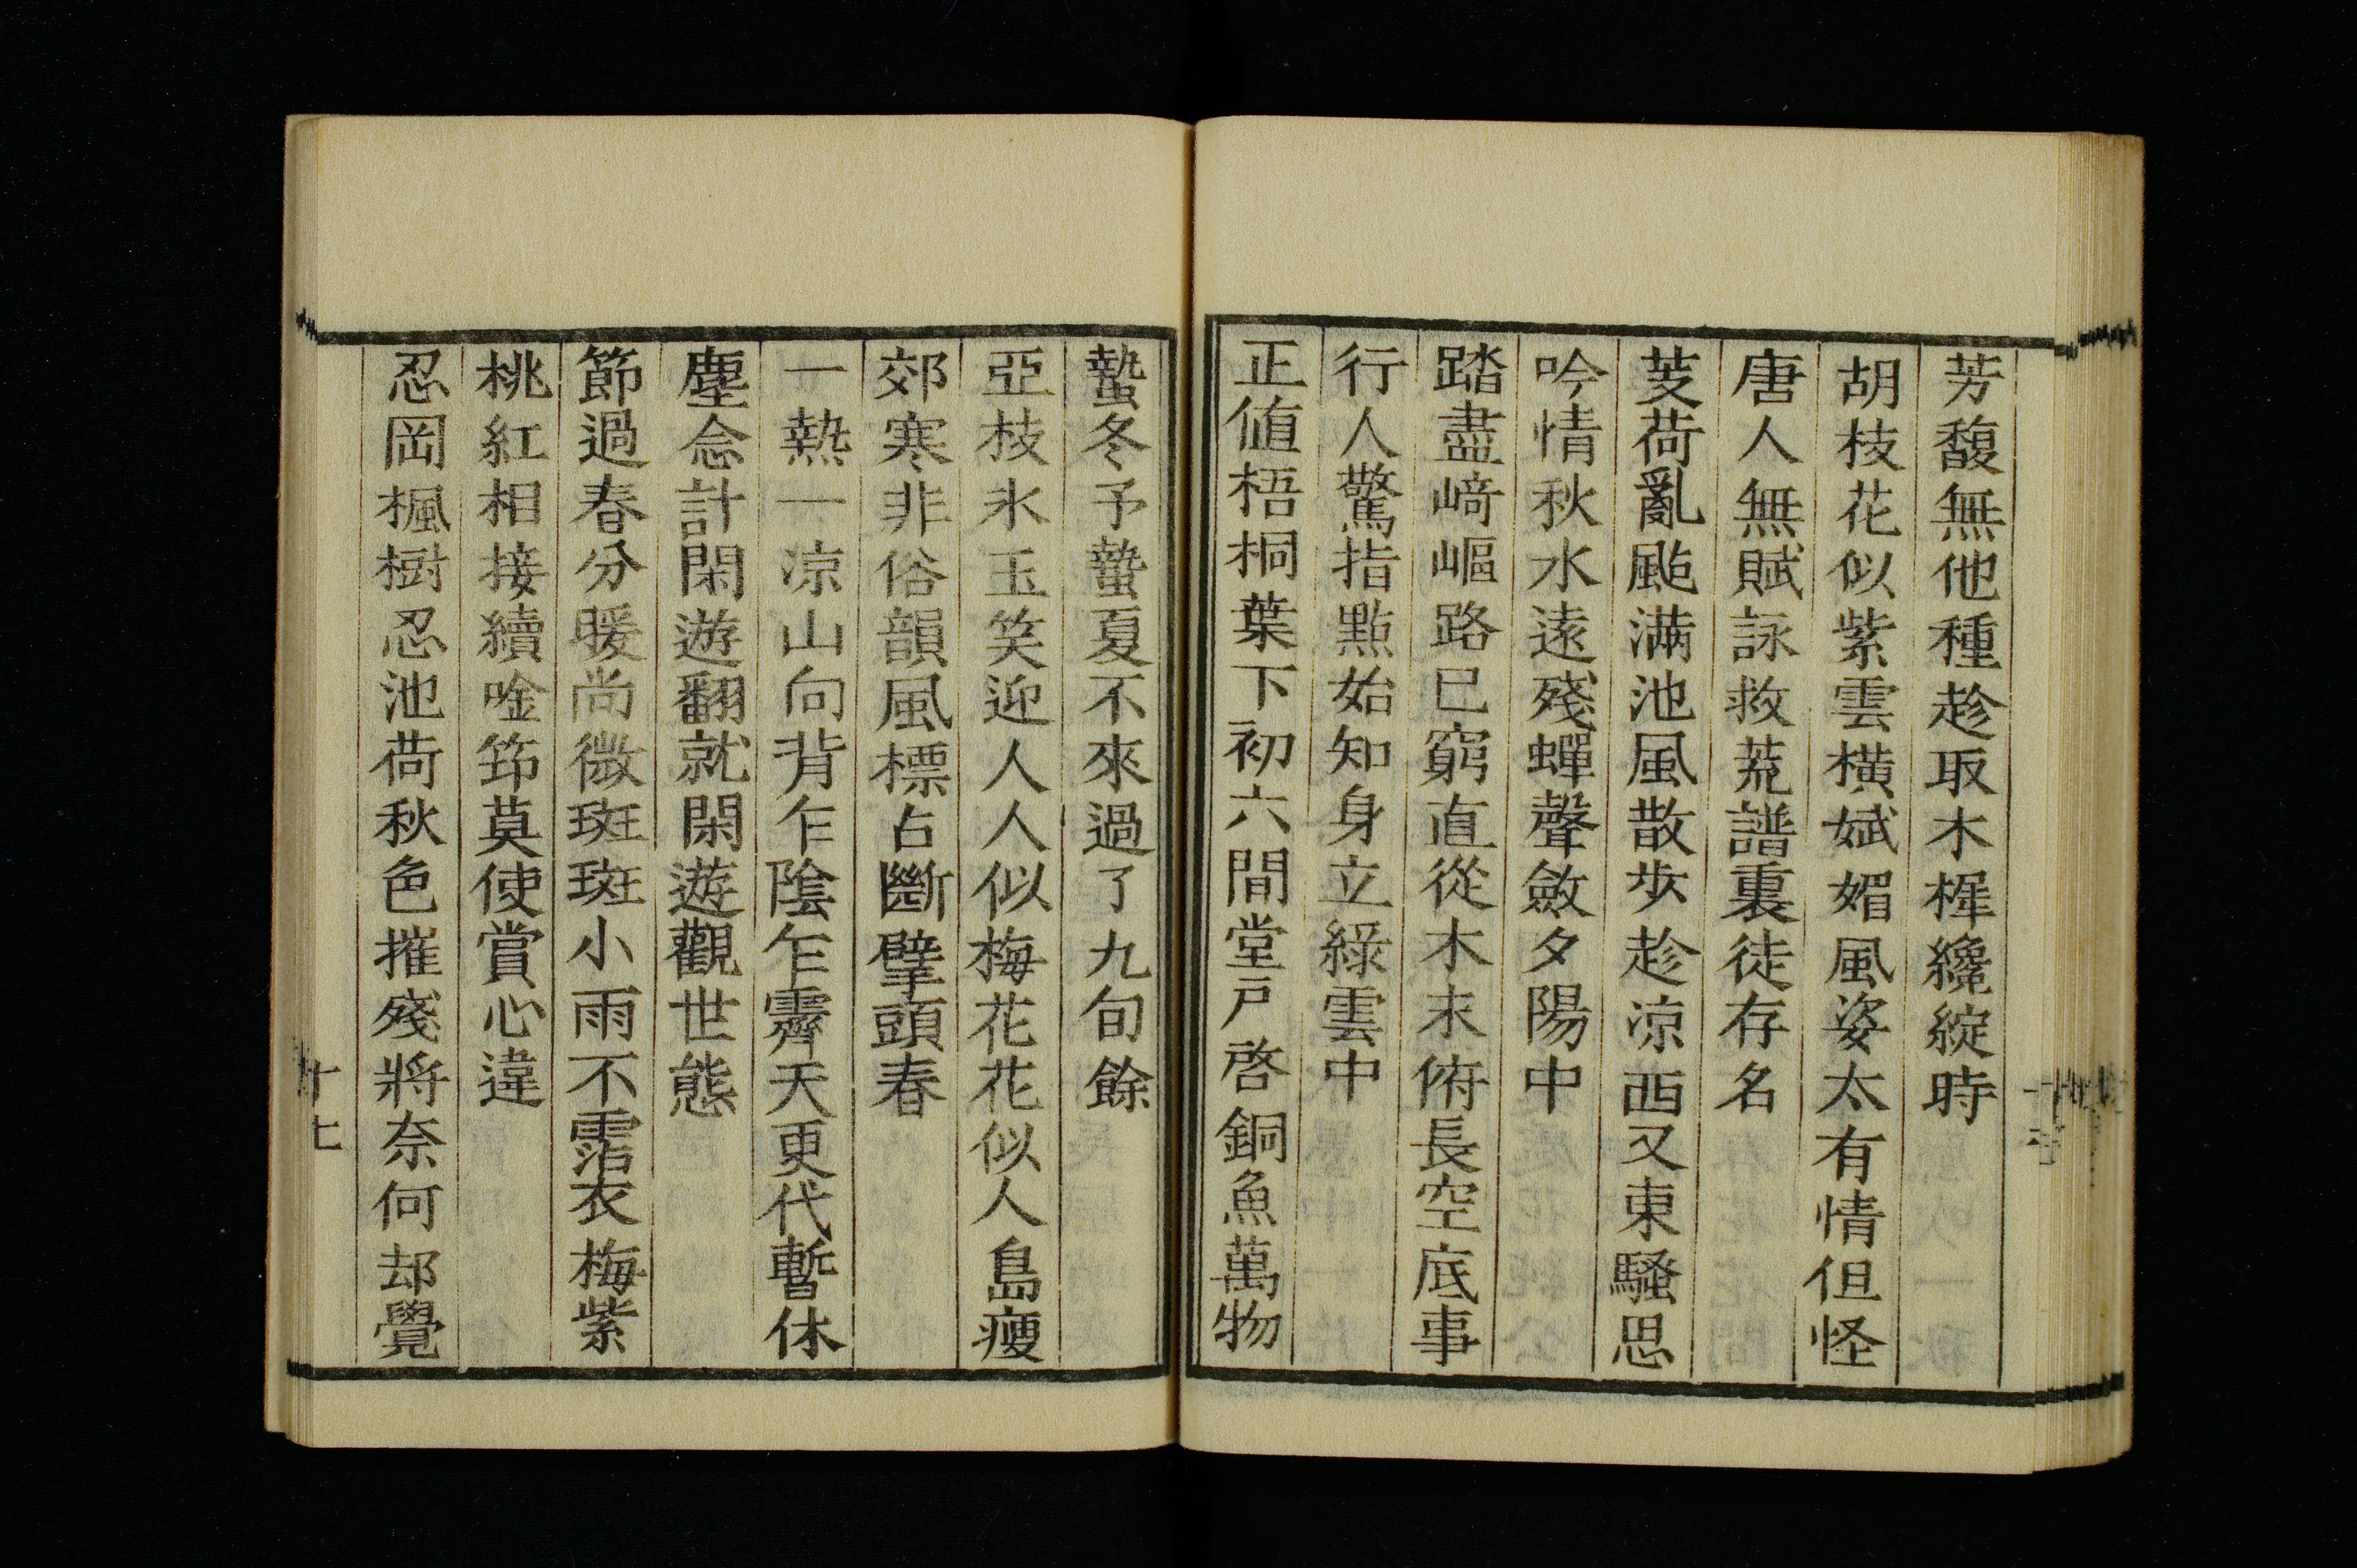 芳馥無他種趁取木樨纔綻時
胡枝花似紫雲橫斌媚風姿太有情但怪
唐人無賦詠救荒譜裏徒存名
芰荷亂颭満池風散歩趁凉西又東騷思
吟情秋水遠殘蟬聲斂夕陽中
踏盡﨑嶇路已窮直從木末俯長空底事
行人驚指點始知身立綠雲中
正値梧桐葉下初六間堂戸啓銅魚萬物
蟄冬予蟄夏不來過了九旬餘
亞枝氷玉笑迎人人似梅花花似人島瘦
郊寒非俗韻風標占斷擘頭春
一熱一凉山向背乍陰乍霽天更代暫休
塵念計閑遊翻就閑遊觀世態
節過春分暖尚微斑斑小雨不霑衣梅紫
桃紅相接續唫筇莫使賞心違
忍岡楓樹忍池荷秋色摧殘將奈何却覺
十七